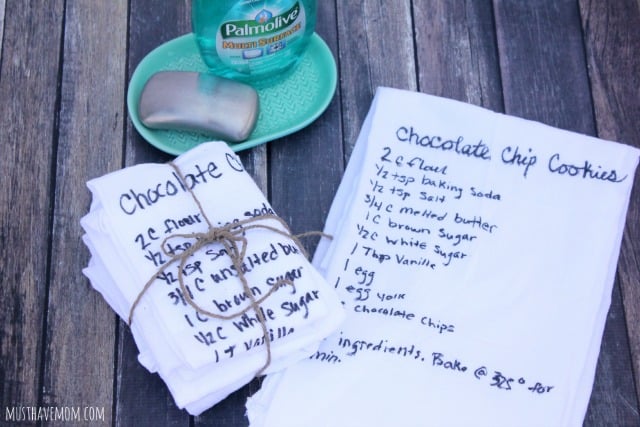 Palmolive
MULTI SURFACE
Chocolate C
2 C flour
1/2 tsp baking soda
1/2 tsp Sa
3/4 C unsalted bu
1 C brown sugar
1/2 C white sugar
1 T vanilla
Chocolate Chip Cookies
2 C flour
1/2 tsp baking soda
1/2 tsp salt
3/4 C melted butter
1 C brown sugar
1/2 C white sugar
1 Tbsp Vanilla
1 egg
1 egg yolk
Chocolate Chips
ingredients. Bake @ 325° for
min.
MUSTHAVEMOM.COM